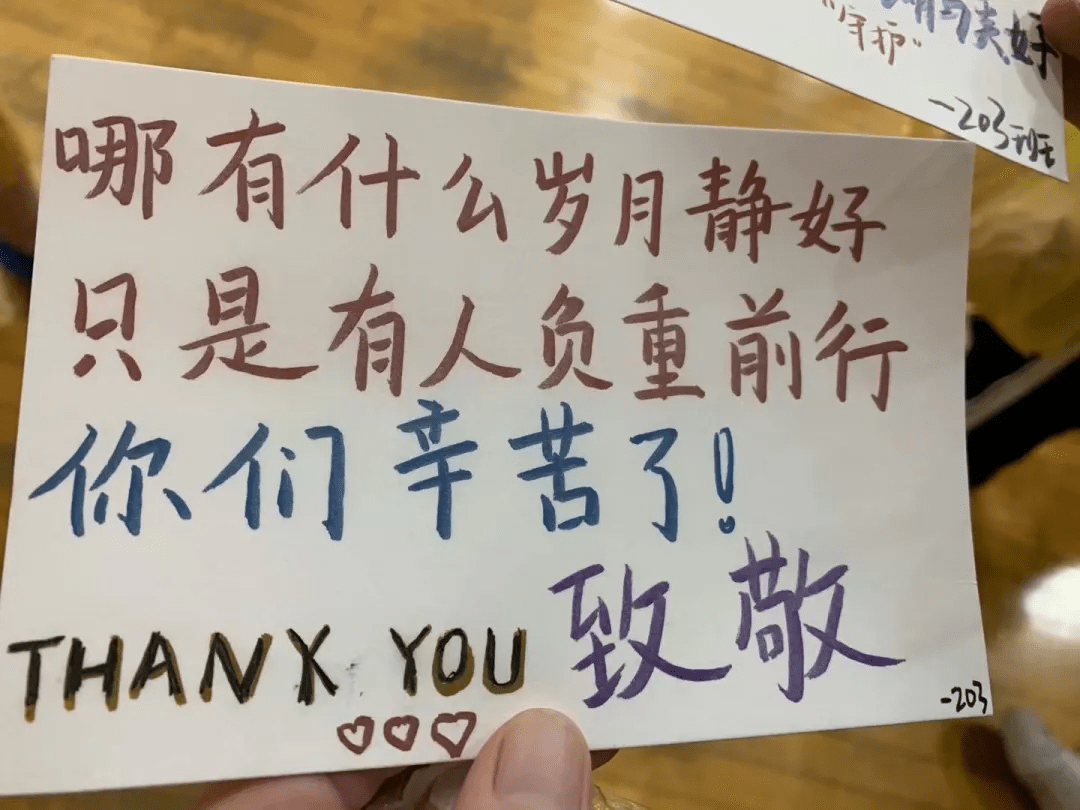 哪有什么岁月静好
只是有人负重前行
你们辛苦了!
致敬
THANK YOU
-203
美好
"守护"
-203班